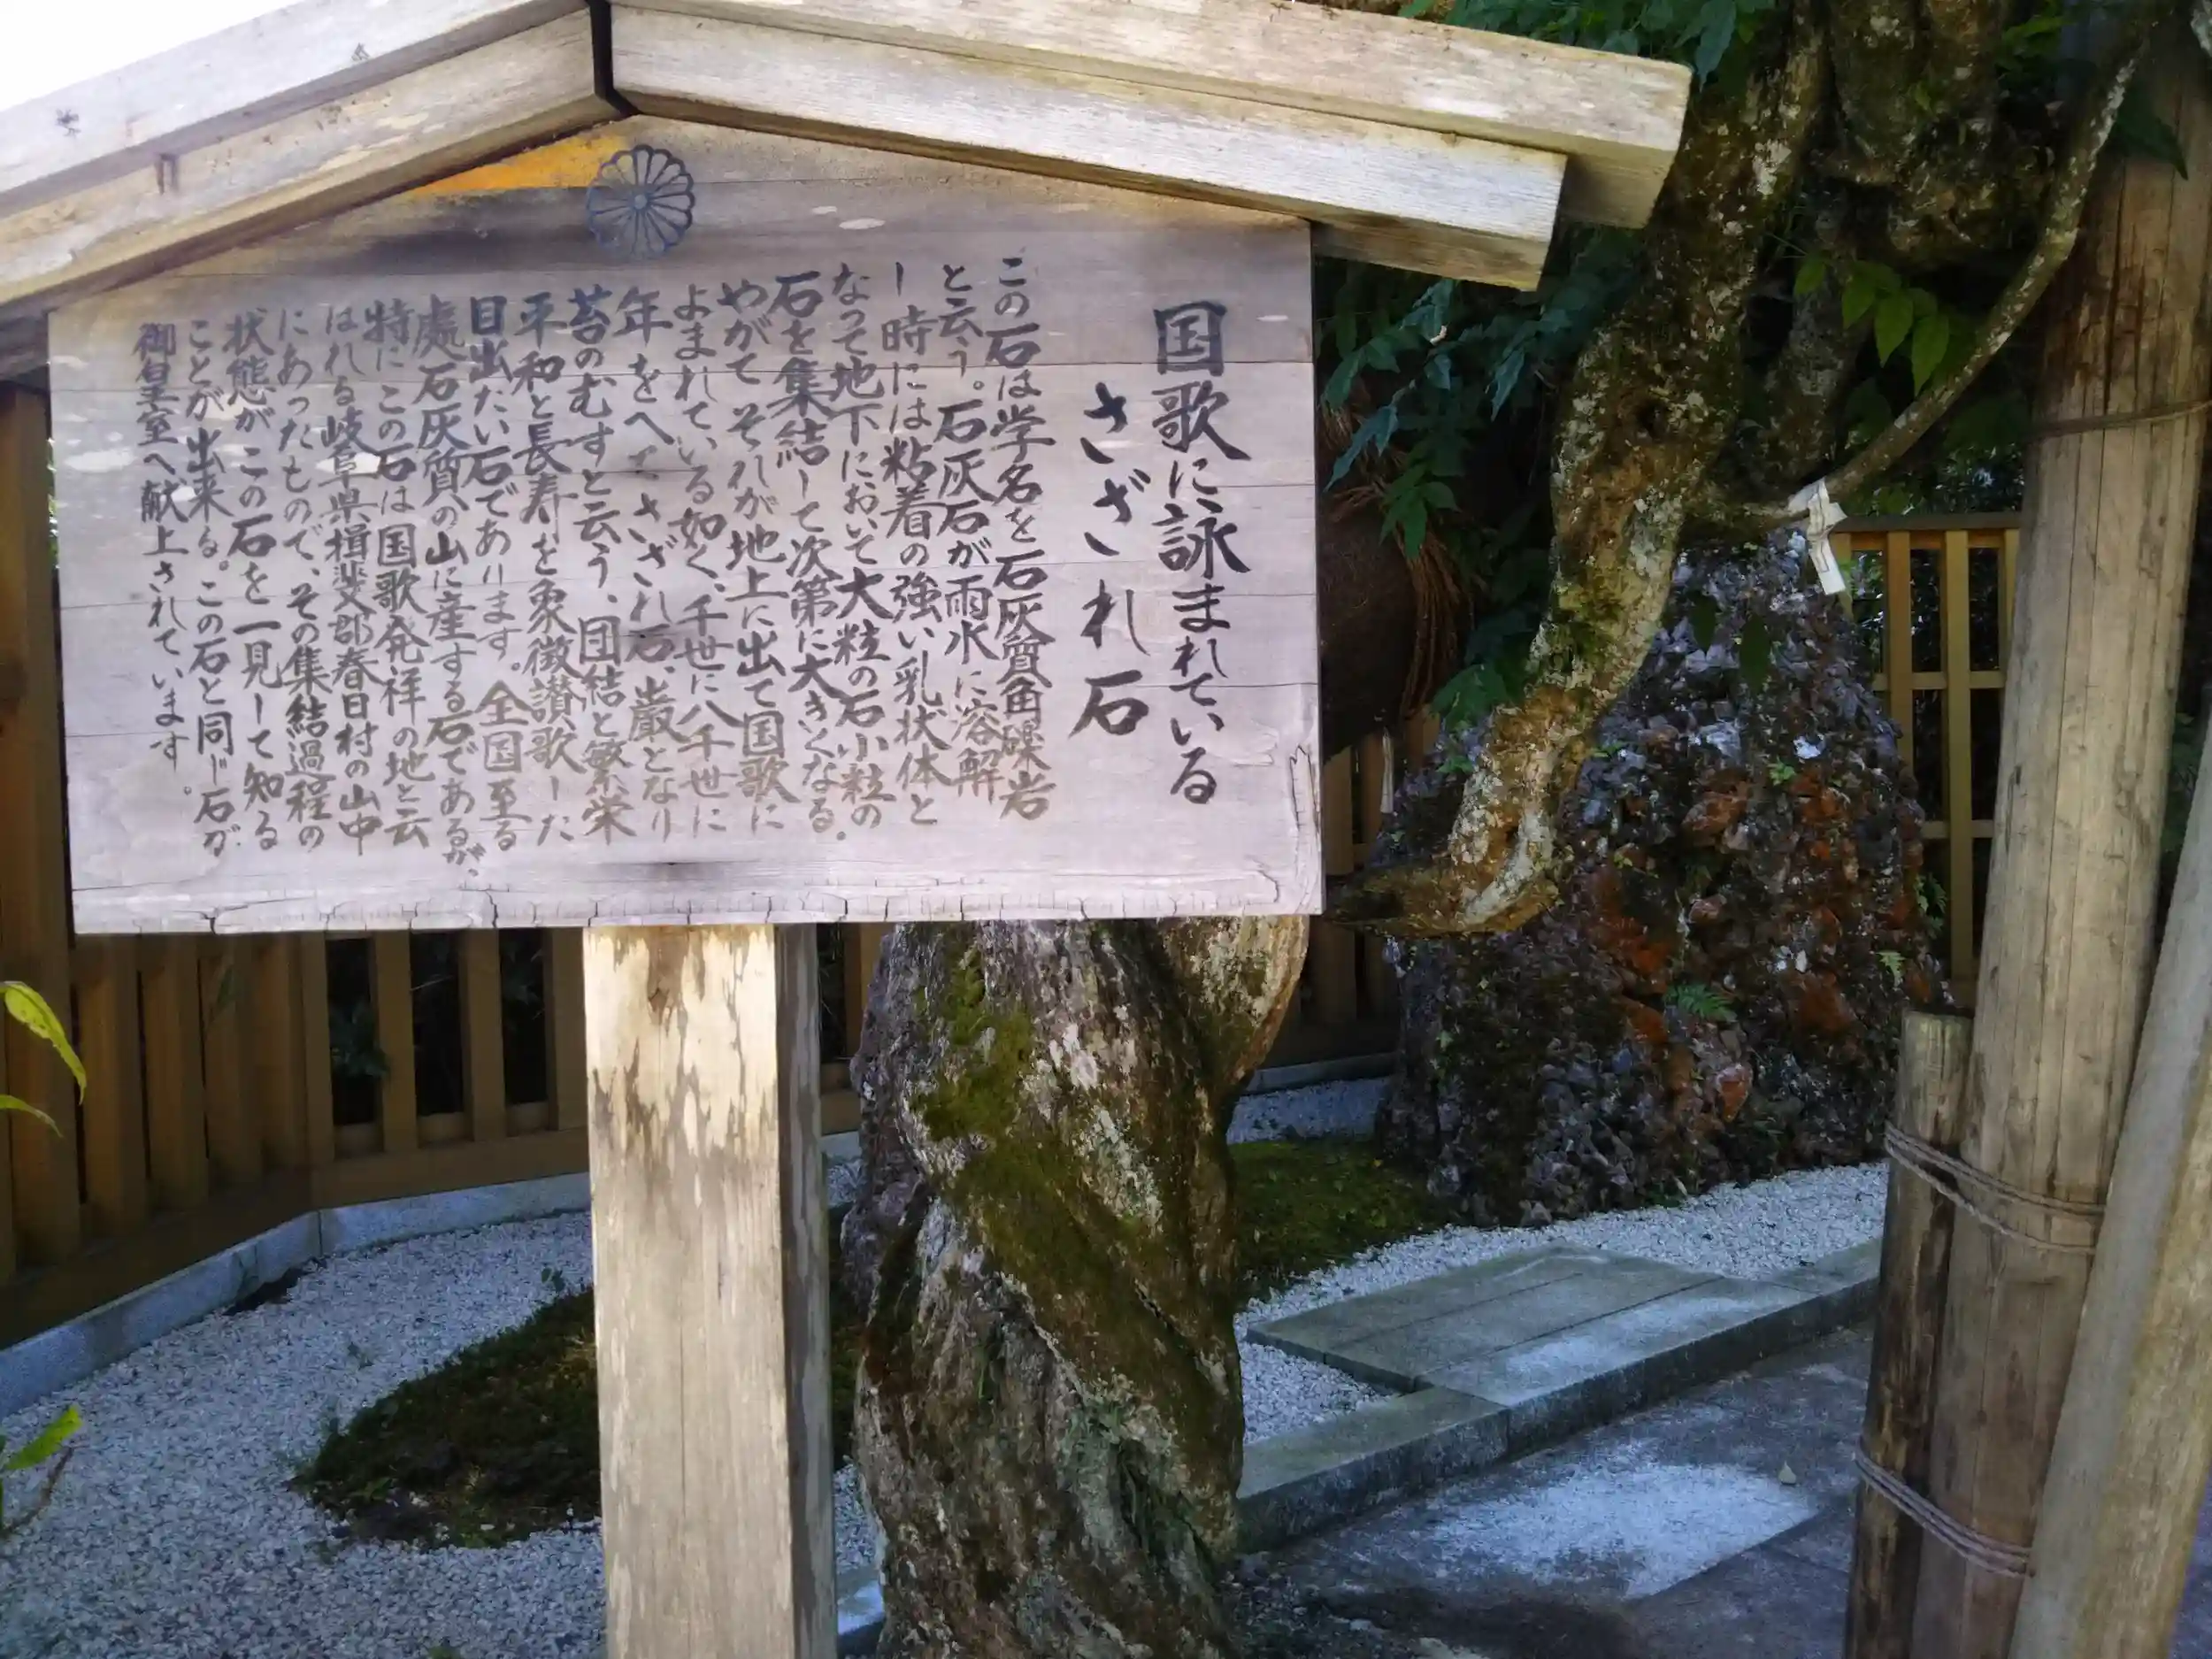 国歌に詠まれている
さざれ石
この石は学名を石灰質角礫岩
と云う。石灰石が雨水に溶解
し時には粘着の強い乳状体と
なって地下において大粒の石小粒の
石を集結して次第に大きくなる。
やがてそれが地上に出て国歌に
よまれている如く、千世に八千世に
年をへてさざれ石、巌となり
苔のむすと云う、団結と繁栄
平和と長寿を象徴讃歌した
目出たい石であります。全国至る
處石灰質の山に産する石であるが、
特にこの石は国歌発祥の地と云
はれる岐阜県揖斐郡春日村の山中
にあったもので、その集結過程の
状態がこの石を一見して知る
ことが出来る。この石と同じ石が
御皇室へ献上されています。